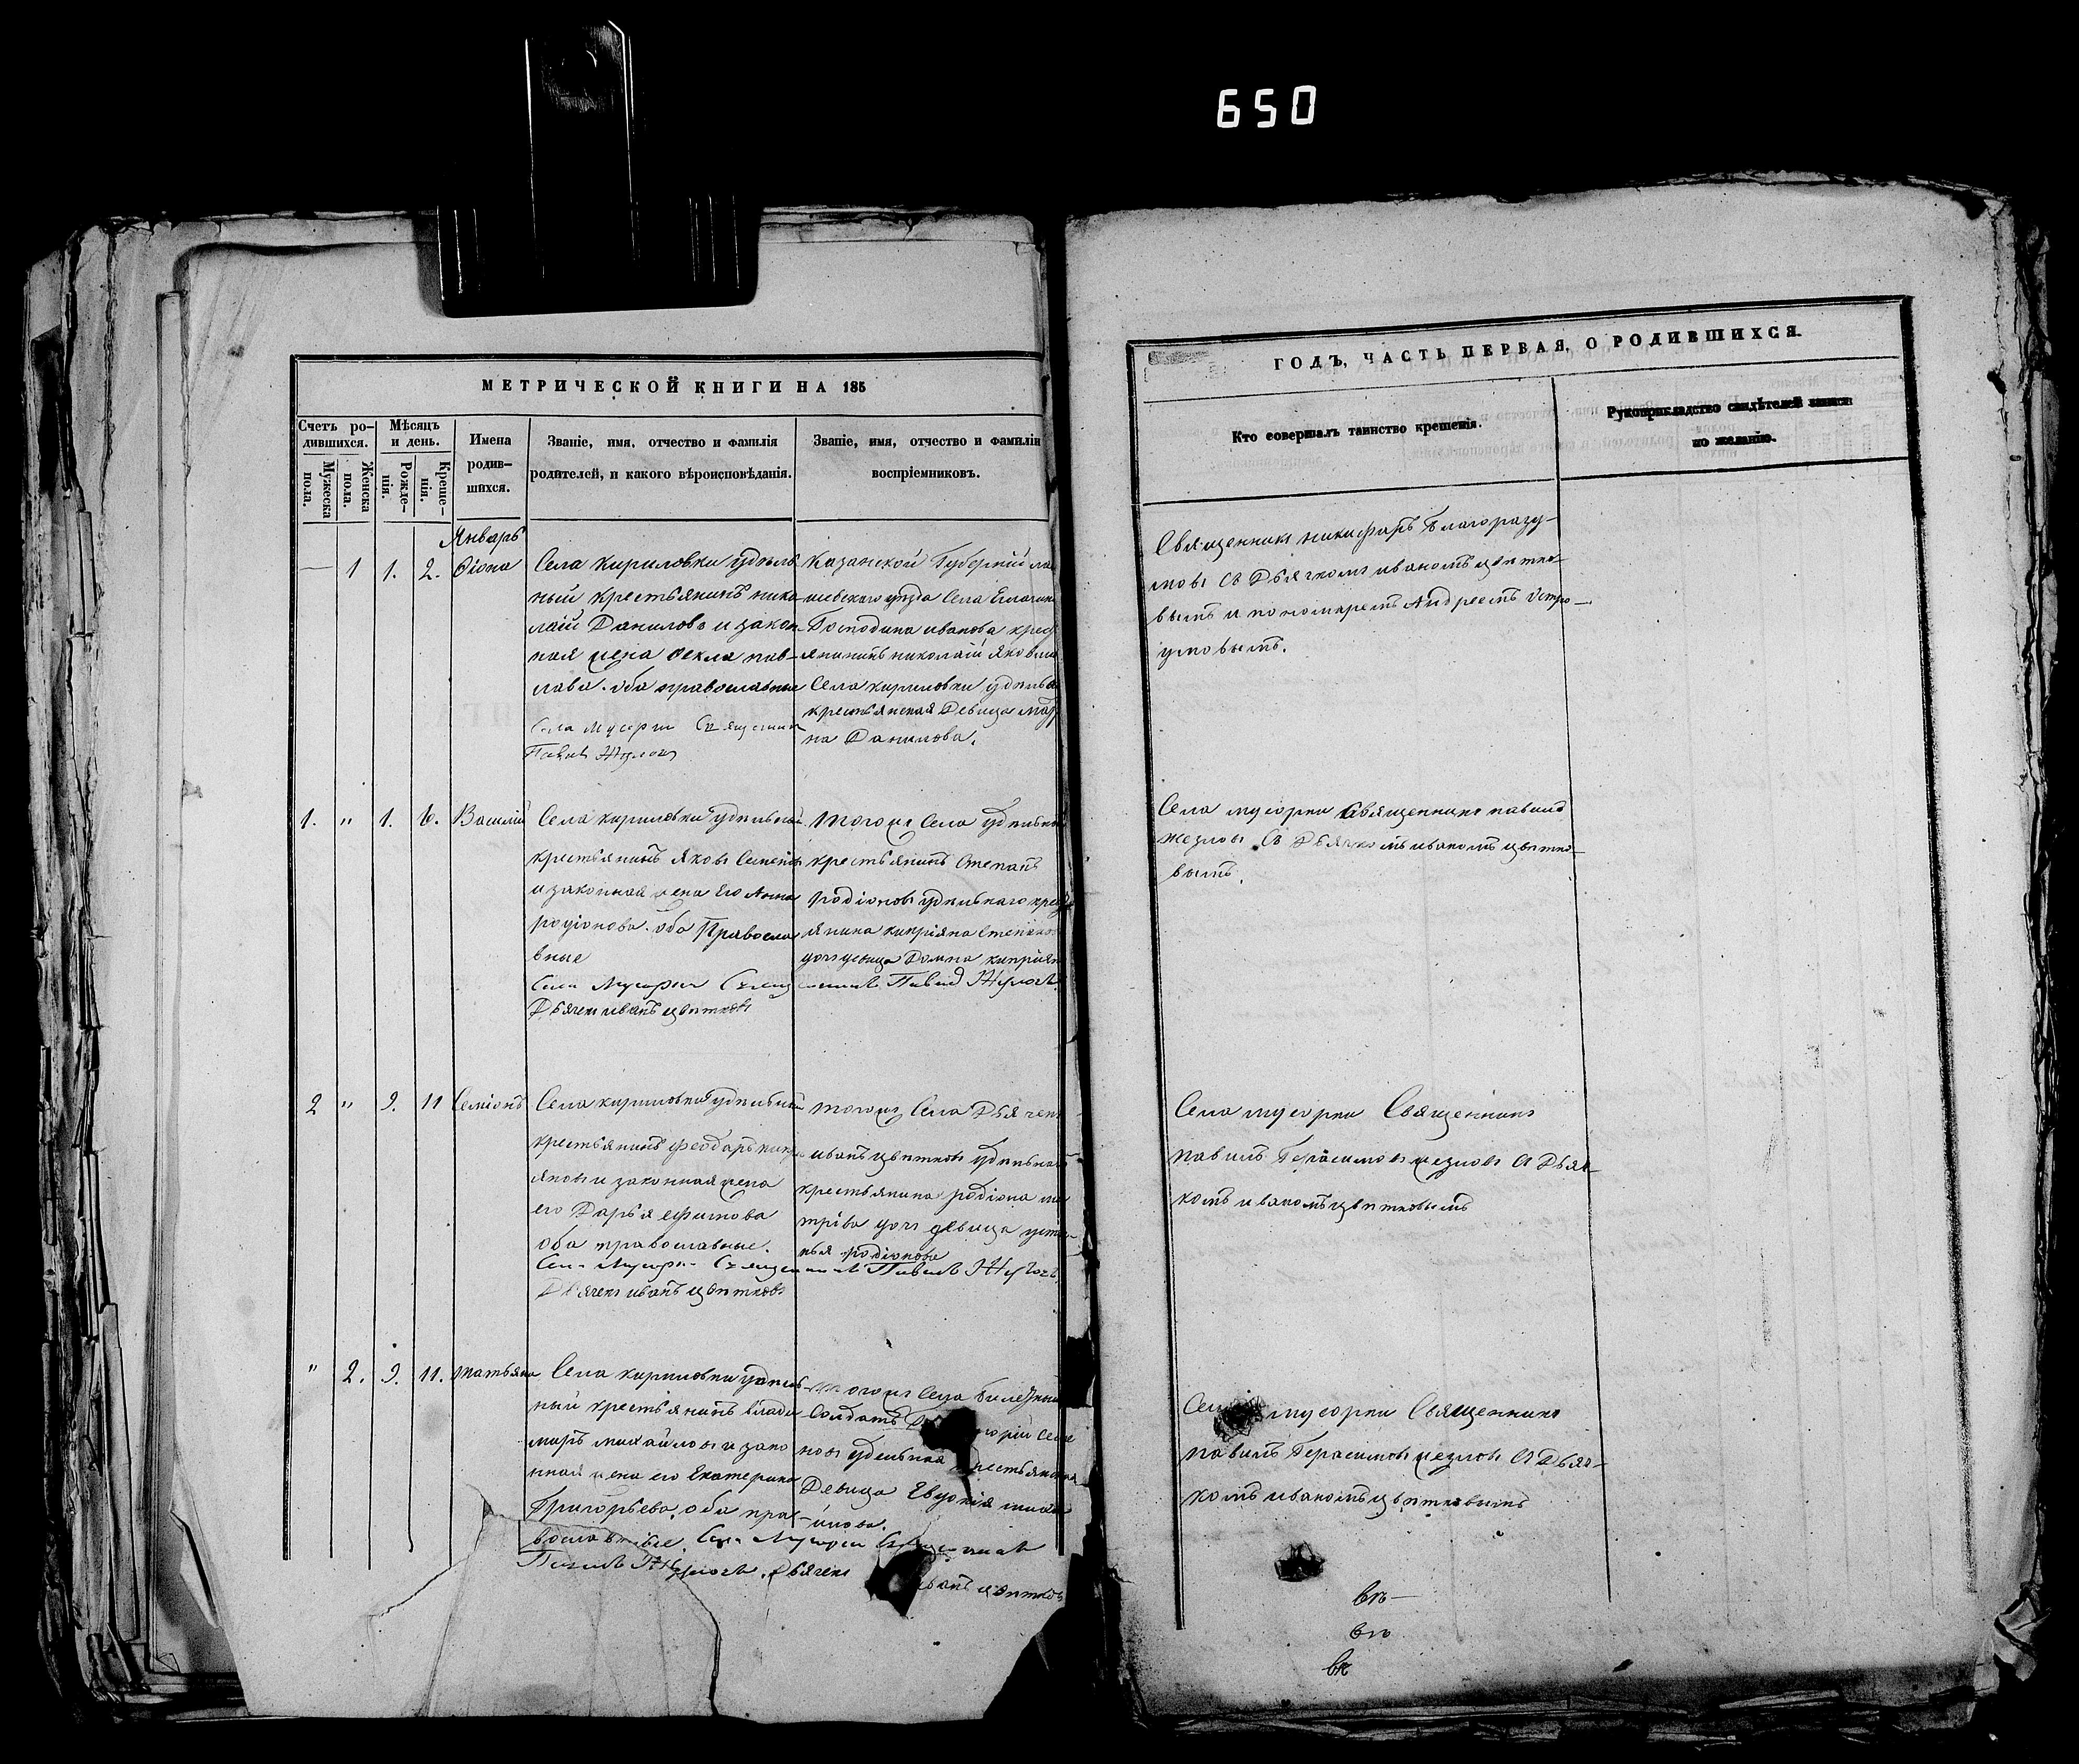 650
МЕТРИЧЕСКОЙ КНИГИ НА 185
Счетъ ро-
дившихся.
Мужеска
пола.
Женска
пола.
Мѣсяцъ
и день.
Рожде-
нія.
Креще-
нія.
Имена
родив-
шихся.
Званіе, имя, отчество и фамилія
родителей, и какого вѣроисповѣданія.
Званіе, имя, отчество и фамилія
воспріемниковъ.
Январь
— 1 1. 2. Ѳіона
Села Кириловки удѣль
ный крестьянинъ Нико
лай Даниловъ и закон
ная жена Ѳекла пав-
лова. оба православные
Села Мусорки Священникъ
Павилъ Жезловъ
Казанской Губерніи
уѣзда Села
Господина иванова
николай Яковлев
Села кириловки удѣльн
крестьянская Девица
на Данилова.
1. " 1. 6. Василій
Села кириловки удѣльный
крестьянинъ Яковъ Семенов
и законная жена Его Анна
родіонова. оба Правосла
вные
Села Мусорки Священникъ Павилъ Жезловъ
Дьячекъ иванъ цвѣтковъ
тогожъ Села удѣльный
крестьянинъ Степанъ
родіоновъ удѣльнаго крест
янина киприяна Степанов
дочь девица Домна киприян
2 " 9. 11 Семіонъ
Села кириловки удѣльный
крестьянинъ Феодоръ кипри
яновъ и законная жена
его Дарья ефимова
оба православные.
Села Мусорки Священникъ Павилъ Жезловъ
Дьячекъ иванъ цвѣтковъ
тогожъ Села Дьячекъ
иванъ цвѣтковъ удѣльнаго
крестьянина родіона
дочь девица усти
нья родіонова
" 2. 9. 11. татьяна
Села кириловки удѣль
ный крестьянинъ влади
миръ михайловъ и зако
нная жена его Екатерина
Григорьева. оба пра-
вославные. Села Мусорки Священникъ
Павилъ Жезловъ. Дьячекъ иванъ цвѣтковъ
тогожъ Села билетный
Солдатъ горій Семе
новъ удѣльная крестьянская
Девица Евдокія миха
йлова.
ГОДЪ, ЧАСТЬ ПЕРВАЯ, О РОДИВШИХСЯ.
Кто совершалъ таинство крещенія.
Рукоприкладство свидѣтелей записи
по желанію.
Священникъ никифоръ Благоразу-
мовъ Съ Дьячкомъ иваномъ цвѣтко-
вымъ и пономаремъ Андреемъ Остро-
умовымъ.
Села мусорки Священникъ павилъ
жезловъ Съ Дьячкомъ иваномъ цвѣтко-
вымъ.
Села мусорки Священникъ
павилъ Герасимовъ жезловъ Съ Дьяч-
комъ иваномъ цвѣтковымъ
Села мусорки Священникъ
павилъ Герасимовъ жезловъ Съ Дьяч-
комъ иваномъ цвѣтковымъ